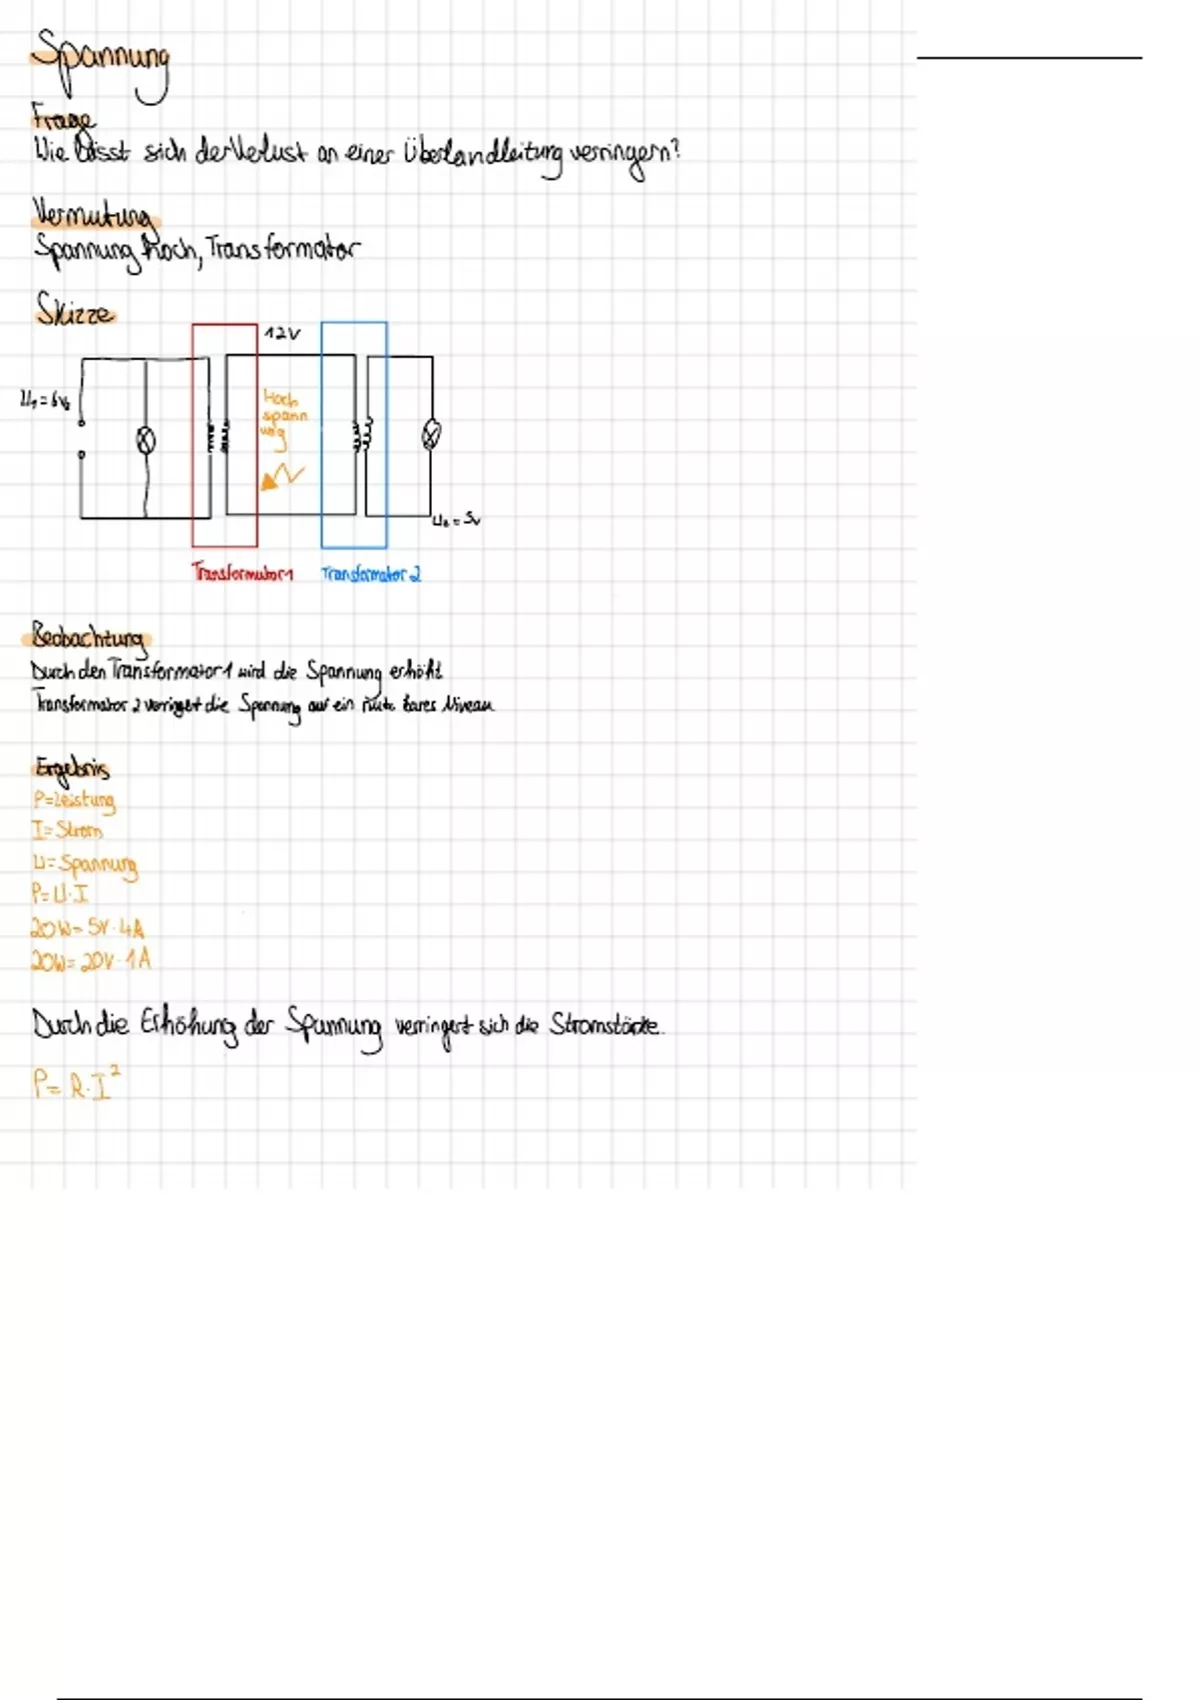 Spannung
Frage
Wie lässt sich der Verlust an einer Überlandleitung verringern?
Vermutung
Spannung hoch, Transformator
Skizze
12V
U₁ = 6V
Hoch
spann
ung
U₂ = 5V
Transformator 1 Transformator 2
Beobachtung
Durch den Transformator 1 wird die Spannung erhöht
Transformator 2 verringert die Spannung auf ein nutzbares Niveau
Ergebnis
P=Leistung
I= Strom
U= Spannung
P= U·I
20W= 5V·4A
20W= 20V·1A
Durch die Erhöhung der Spannung verringert sich die Stromstärke.
P= R·I²